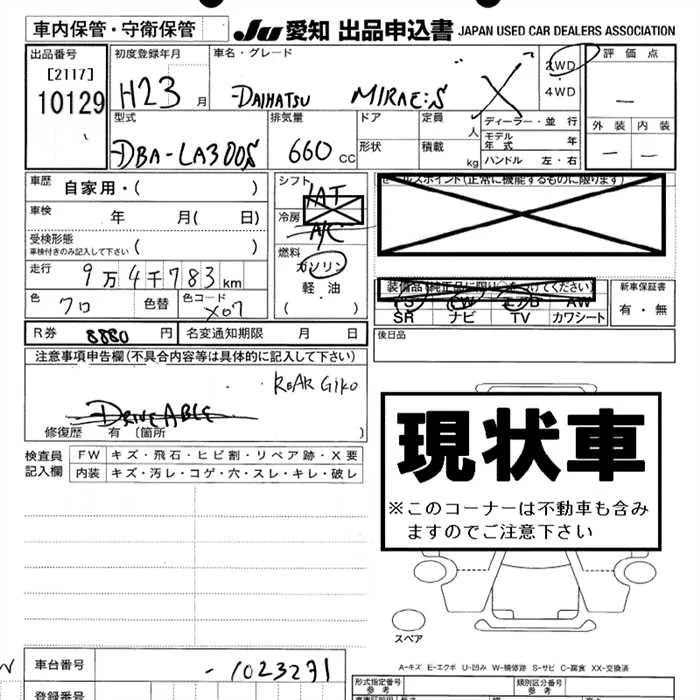 車内保管・守衛保管
JU 愛知 出品申込書 JAPAN USED CAR DEALERS ASSOCIATION
出品番号
[2117]
10129
初度登録年月
H23 月
車名・グレード
DAIHATSU MIRAE:S X
2WD
4WD
評価点
—
外装 内装
— —
型式
DBA-LA300S
排気量
660 CC
ドア
形状
定員 人
積載 kg
ディーラー・並行
モデル年式 年
ハンドル 左・右
車歴 自家用・( )
車検 年 月( 日)
受検形態
車検付きのみ記入して下さい ( )
走行 9万4千783km
色 クロ 色替 色コード X07
R券 8880 円 名変通知期限 月 日
シフト
IAT
冷房
A/C
燃料
ガソリン
軽・油
( ・ )
セールスポイント(正常に機能するものに限ります)
装備品(純正品に限り○をつけてください)
PS PW エアB AW
SR ナビ TV カワシート
新車保証書
有・無
後日品
注意事項申告欄(不具合内容等は具体的に記入して下さい)
REAR GIKO
DRIVEABLE
修復歴 有 〔箇所 〕
検査員記入欄
FW キズ・飛石・ヒビ割・リペア跡・X要
内装 キズ・汚レ・コゲ・穴・スレ・キレ・破レ
現状車
※このコーナーは不動車も含み
ますのでご注意下さい
スペア
A-キズ E-エクボ U-凹み W-補修跡 S-サビ C-腐食 XX-交換済
車台番号 -1023271
登録番号
形式指定番号
参考
類別区分番号
参考